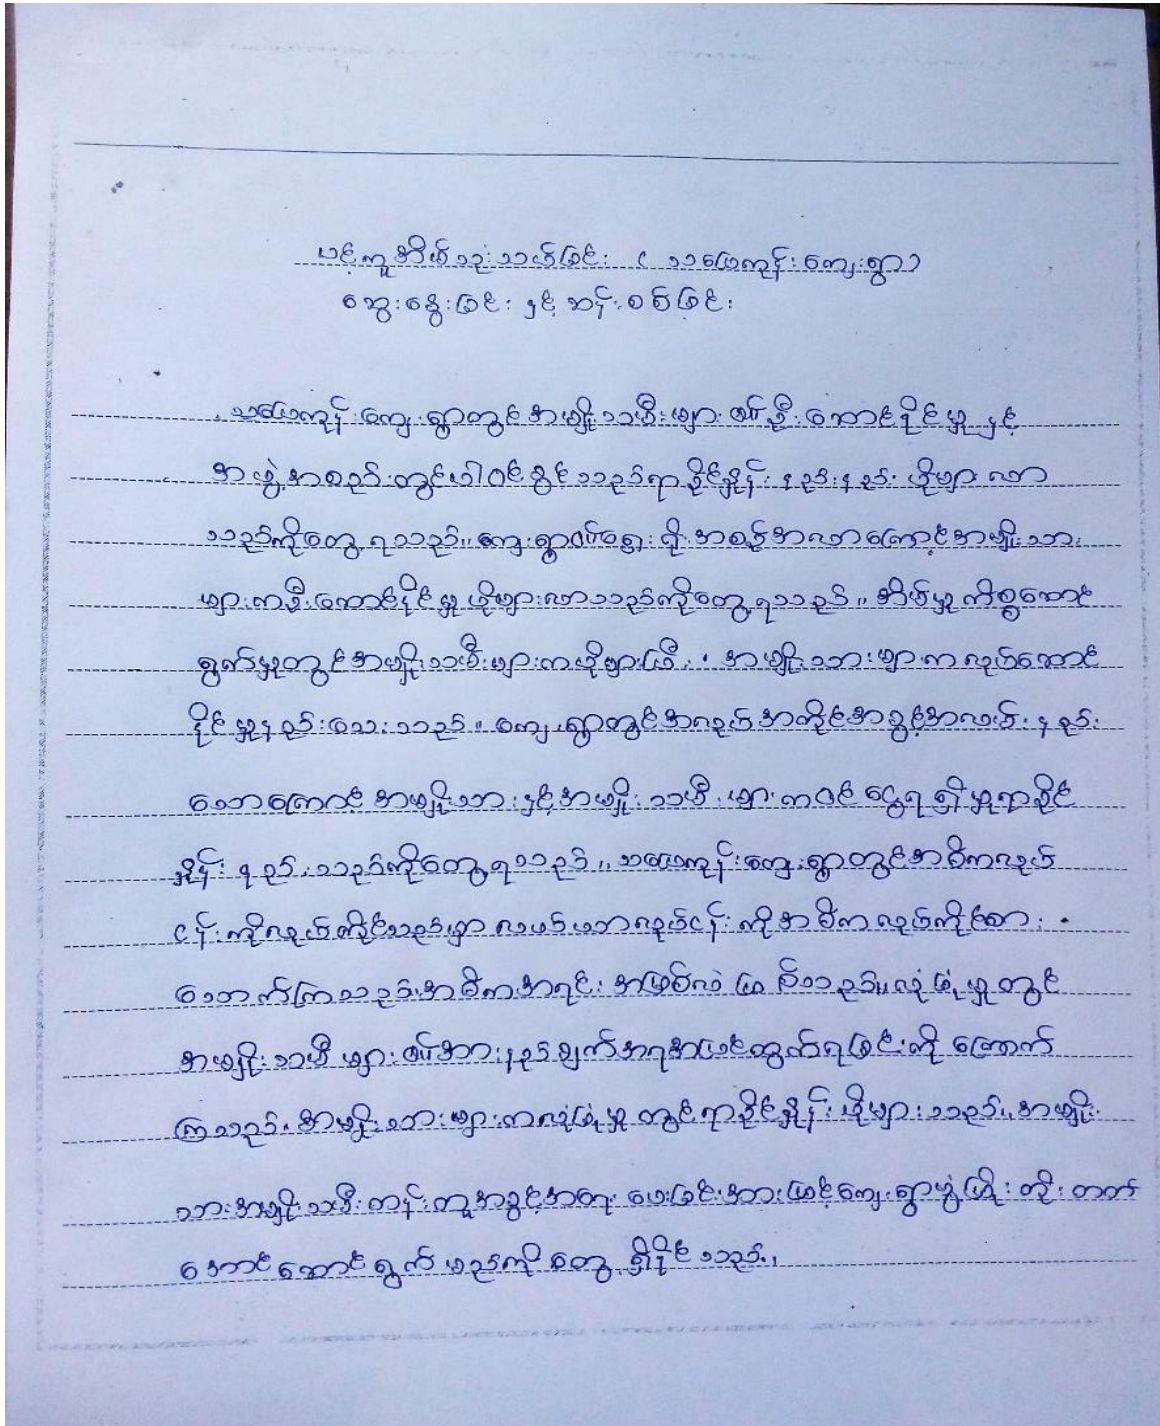 ပင့်ကူအိမ်သုံးသပ်ခြင်း ( သပြေကုန်းကျေးရွာ)
ဆွေးနွေးခြင်း နှင့် ဆန်းစစ်ခြင်း
သပြေကုန်းကျေးရွာတွင်အမျိုးသမီးများ၏ဦးဆောင်နိုင်မှုနှင့်
အဖွဲ့အစည်းတွင်ပါဝင်ခွင့်သည်ရာခိုင်နှုန်းနည်းနည်းပိုများလာ
သည်ကိုတွေ့ရသည်။ကျေးရွာ၏ရှေးရိုးအစဉ်အလာကြောင့်အမျိုးသား
များကဦးဆောင်နိုင်မှုပိုများလာသည်ကိုတွေ့ရသည်။အိမ်မှုကိစ္စဆောင်
ရွက်မှုတွင်အမျိုးသမီးများကပိုများပြီး၊ အမျိုးသားများကလုပ်ဆောင်
နိုင်မှုနည်းသေးသည်။ကျေးရွာတွင်အလုပ်အကိုင်အခွင့်အလမ်းနည်း
သောကြောင့်အမျိုးသားနှင့်အမျိုးသမီးများကဝင်ငွေရရှိမှုရာခိုင်
နှုန်းနည်းသည်ကိုတွေ့ရသည်။သပြေကုန်းကျေးရွာတွင်အဓိကလုပ်
ငန်းကိုလုပ်ကိုင်သည်မှာလယ်ယာလုပ်ငန်းကိုအဓိကလုပ်ကိုင်စား
သောက်ကြသည်။အဓိကအရင်းအမြစ်လဲဖြစ်သည်။လုံခြုံမှုတွင်
အမျိုးသမီးများ၏အားနည်းချက်အရအပြင်ထွက်ရခြင်းကိုကြောက်
ကြသည်။အမျိုးသားများကလုံခြုံမှုတွင်ရာခိုင်နှုန်းပိုများသည်။အမျိုး
သားအမျိုးသမီးတန်းတူအခွင့်အရေးပေးခြင်းအားဖြင့်ကျေးရွာဖွံ့ဖြိုးတိုးတက်
အောင်ဆောင်ရွက်မည်ကိုတွေ့ရှိနိုင်သည်။